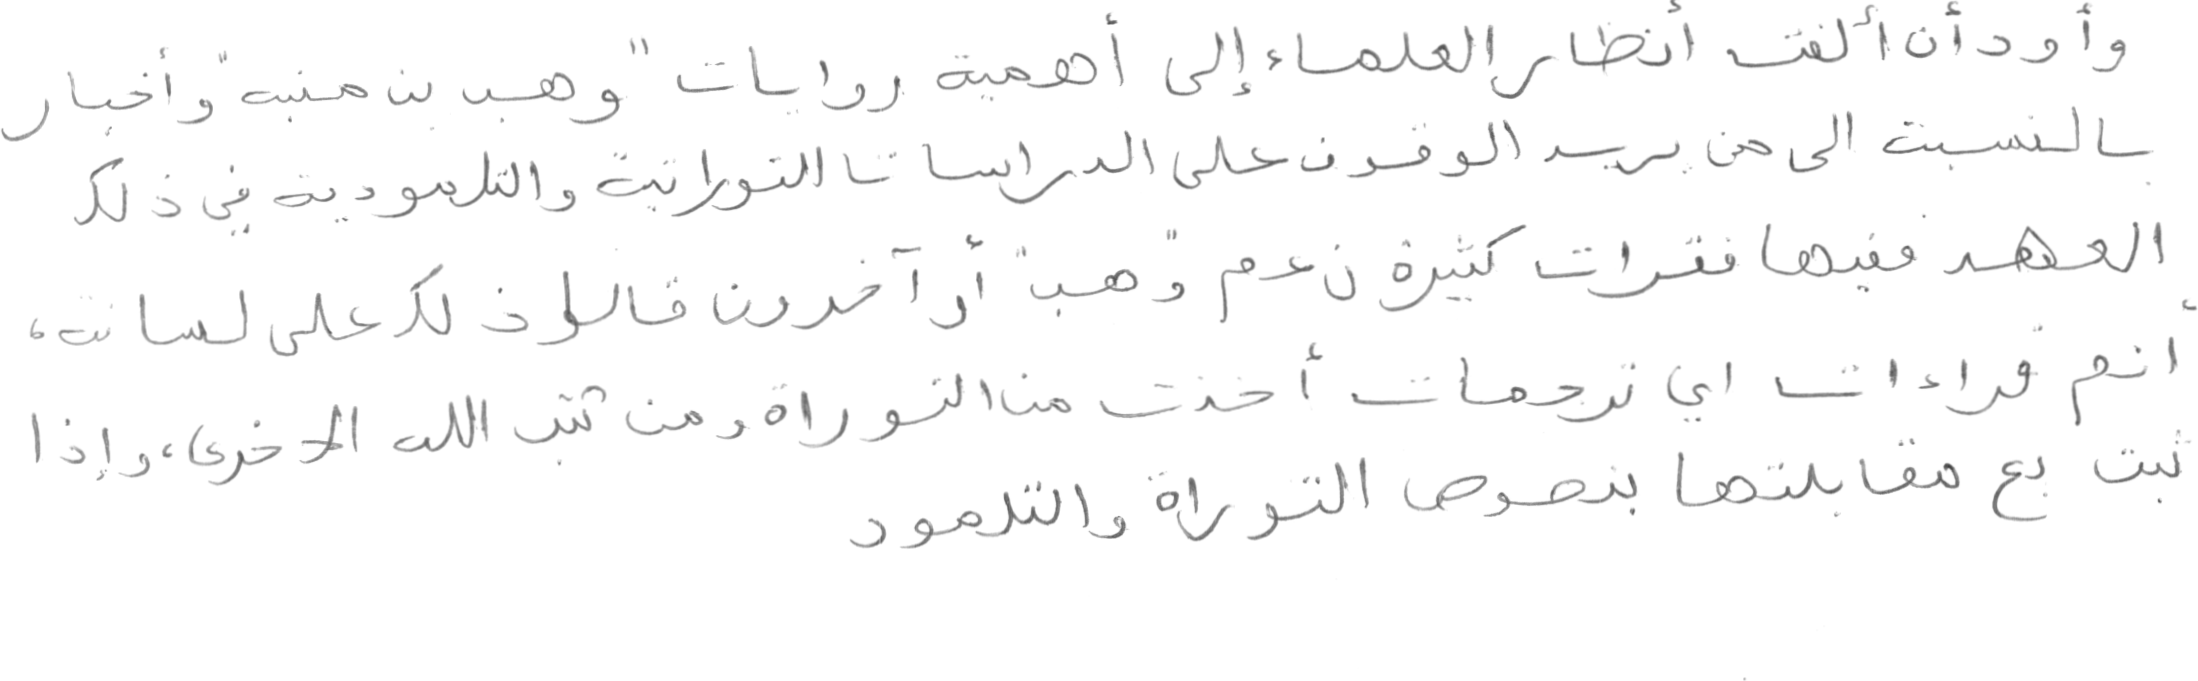 وأود أن ألفت أنظار العلماء إلى أهمية روايات "وهب بن منبه" وأخبار
بالنسبة الى من يريد الوقوف على الدراسات التوراتية والتلمودية في ذلك
العهد ففيها فقرات كثيرة زعم "وهب" أو آخرون قالوا ذلك على لسانه،
أنم قراءات اي ترجمات أخذت من التوراة ومن كتب الله الأخرى، وإذا
ثبت بع مقابلتها بنصوص التوراة والتلمود